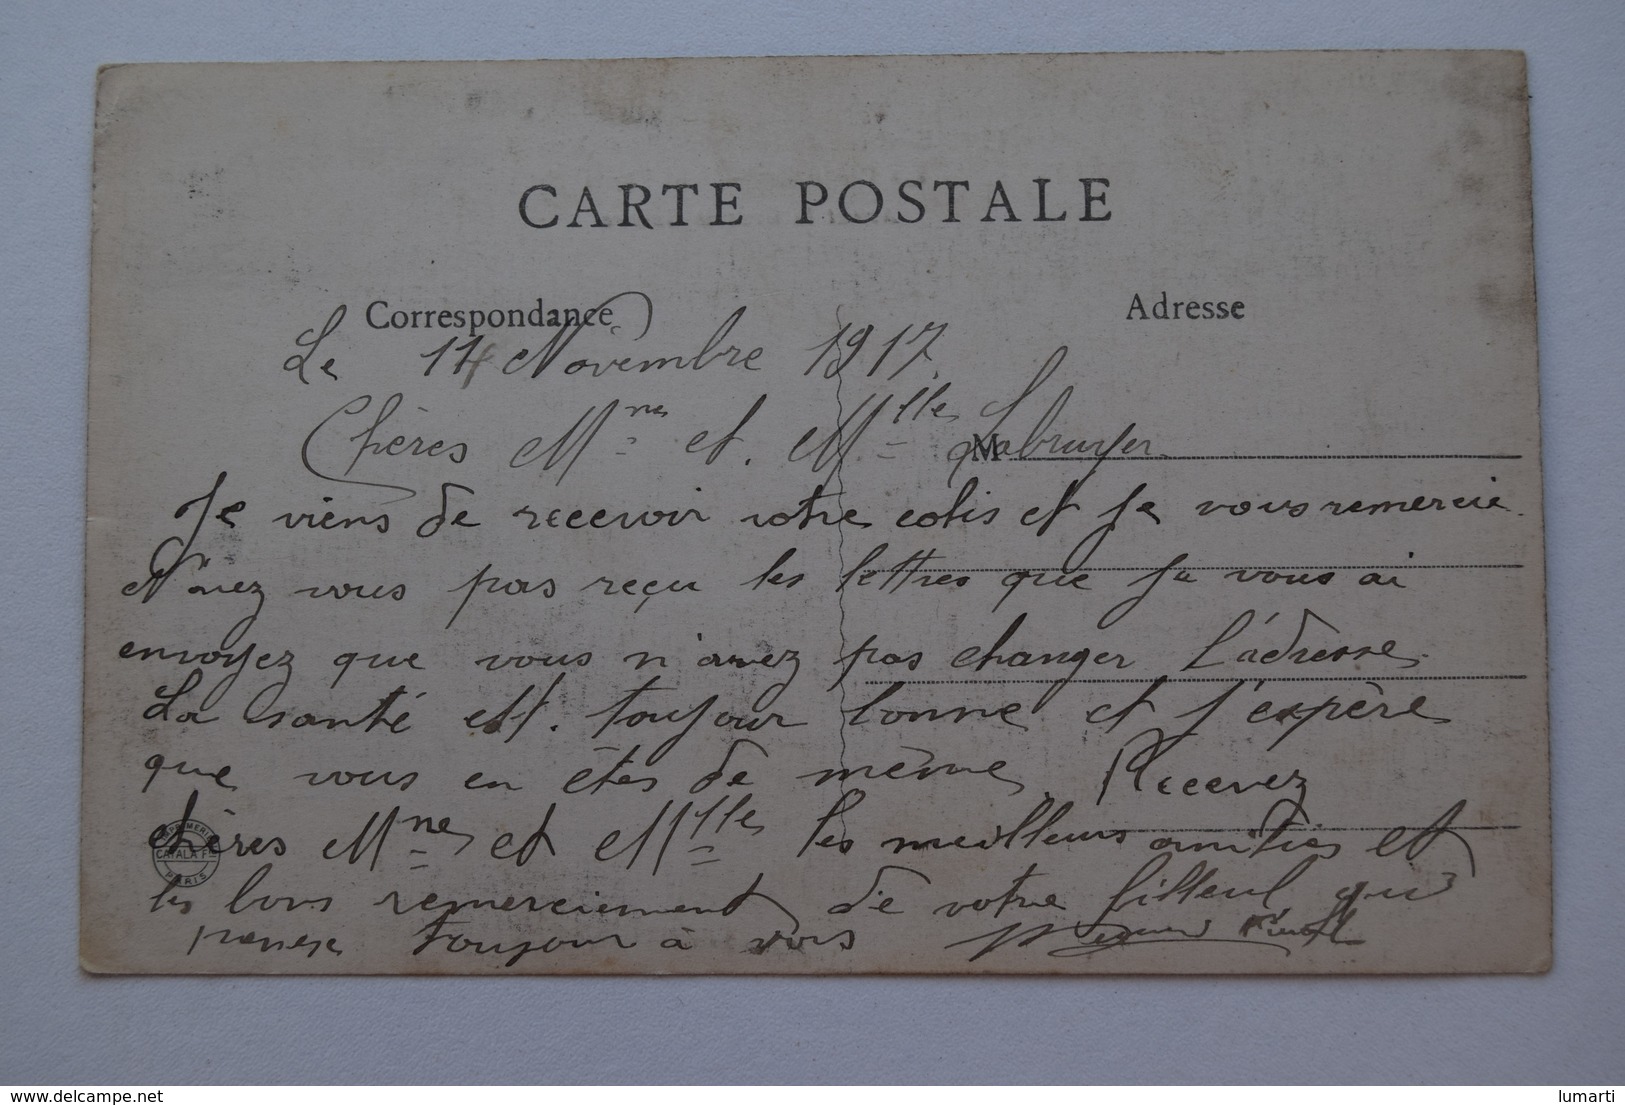 CARTE POSTALE
Correspondance
Adresse
Le 14 Novembre 1917.
Chères Mme et. Mlle Labruyer
M
Je viens de recevoir votre colis et je vous remercie.
N'avez vous pas reçu les lettres que je vous ai
envoyez que vous n'avez pas changer l'adresse.
La santé est. toujour bonne et j'espère
que vous en êtes de même. Recevez
chères Mme et Mlle les meilleurs amitiés et
les bons remerciement de votre filleul qui
pense toujour à vous
IMPRIMERIE CATALA Fres PARIS
lumarti